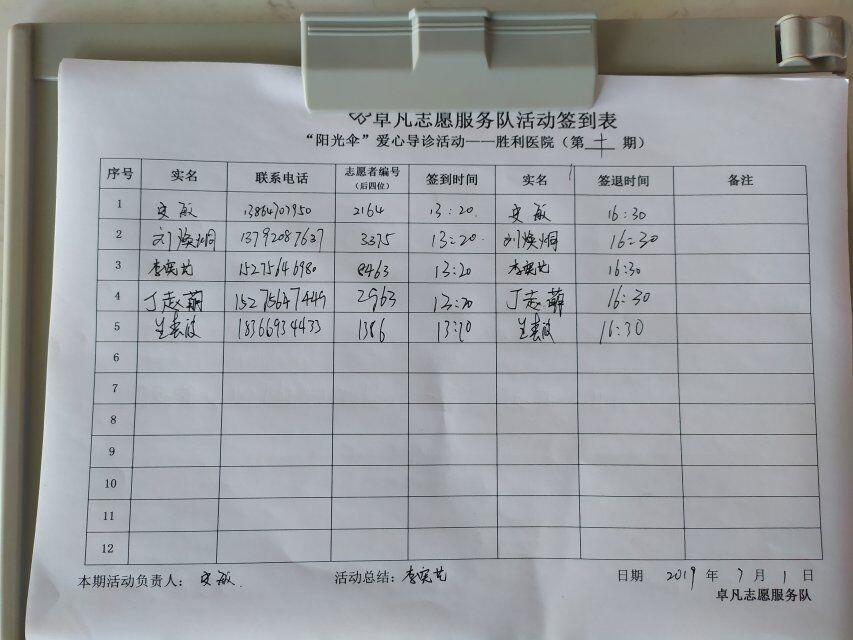 卓凡志愿服务队活动签到表
“阳光伞”爱心导诊活动——胜利医院（第 十 期）
序号 实名 联系电话 志愿者编号（后四位） 签到时间 实名 签退时间 备注
1 安敏 13864707950 2164 13:20. 安敏 16:30
2 刘焕炯 13792087637 3375 13:20. 刘焕炯 16:30
3 李宪艺 15275646980 8463 13:20 李宪艺 16:30
4 丁赵萌 15275647449 2963 13:20 丁赵萌 16:30
5 18366934433 1386 13:20 16:30
6
7
8
9
10
11
12
本期活动负责人： 安敏. 活动总结：李宪艺 日期 2019 年 7 月 1 日
卓凡志愿服务队